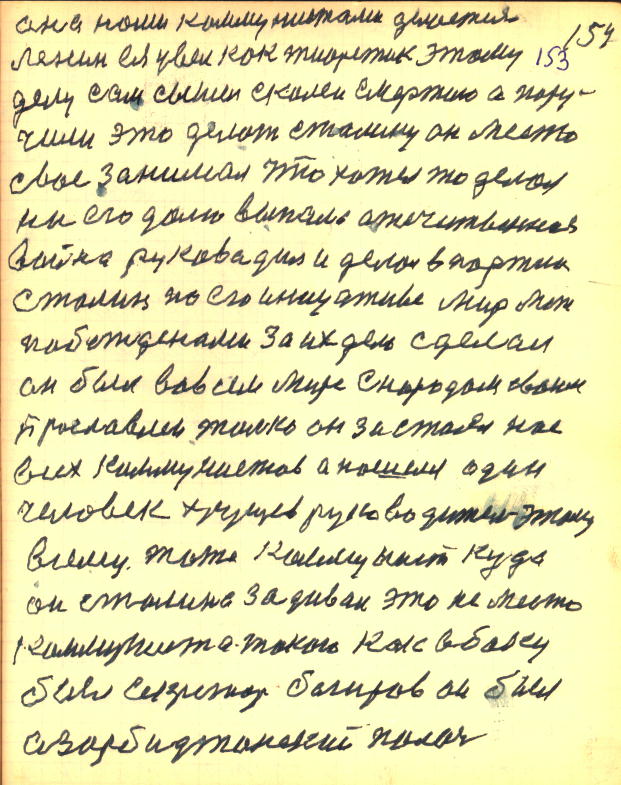 она нами коммунистами делается
Ленин ся увек как тиоретик этому
153
154
делу сам сыние скален смертию а пору-
чили это делат сталину он место
свое занимал што хотел то делал
на его долю выпала атечественная
война руковадил и делал в партии
сталин по его инициативе мир меж
побежденами за их дело сделал
он был вовсем мире снародам своим
прославлен толко он застоял нас
всех коммунистов а нашелся один
человек хрущев руководител этому
всему тоже коммунист куда
он сталина задивал это не место
коммуниста такого как в баку
был секретар багиров он был
азарбиджанский палач